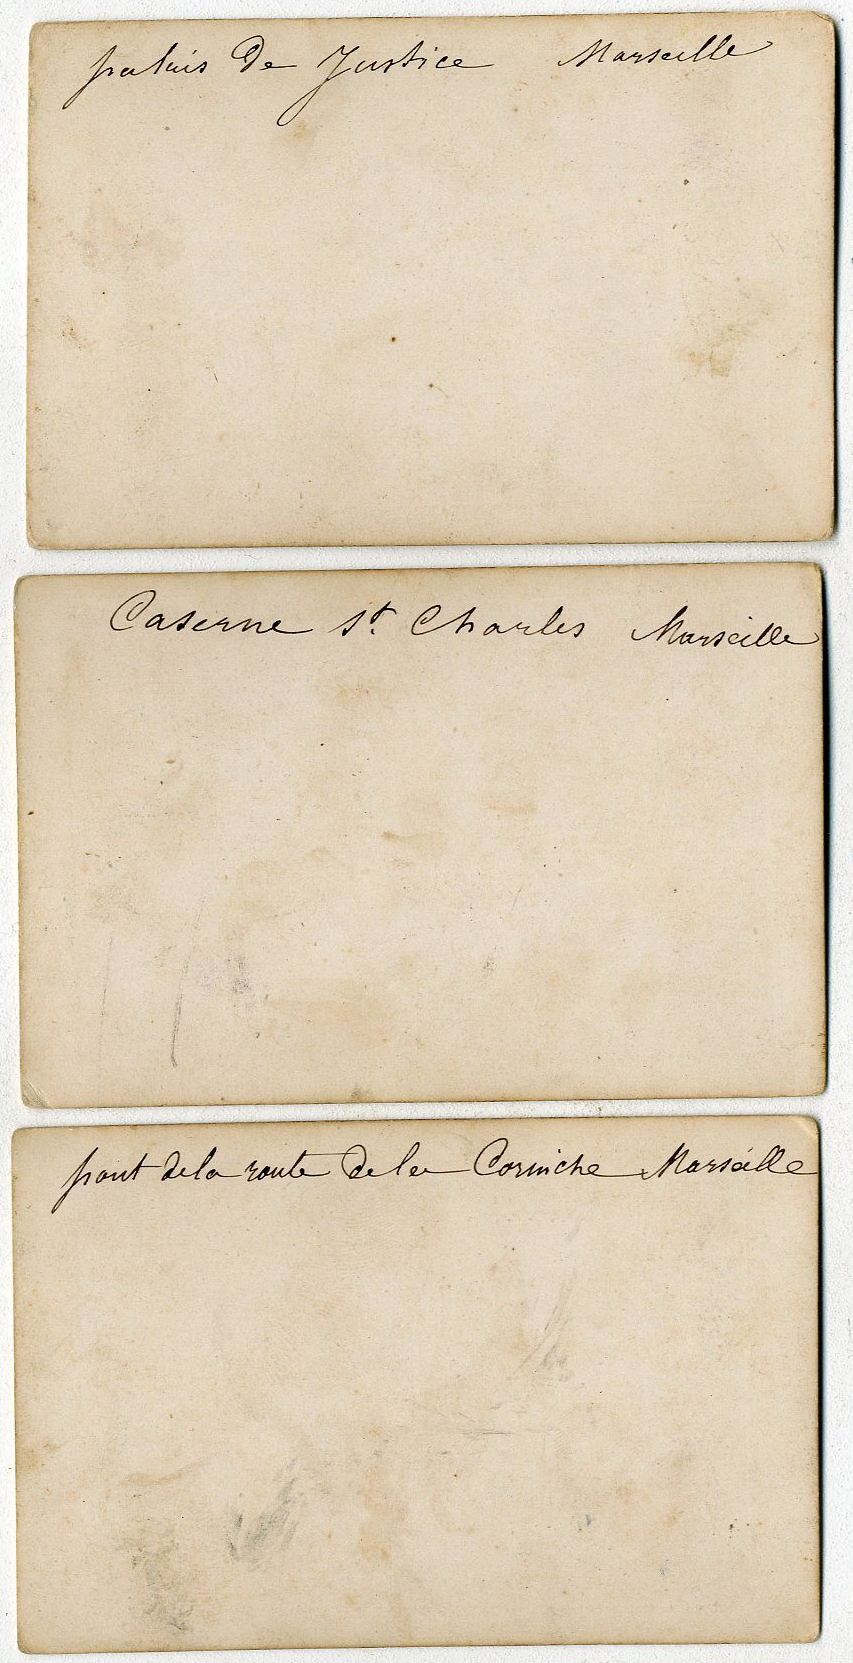 palais de Justice Marseille
Caserne St. Charles Marseille
pont de la route de la Corniche Marseille